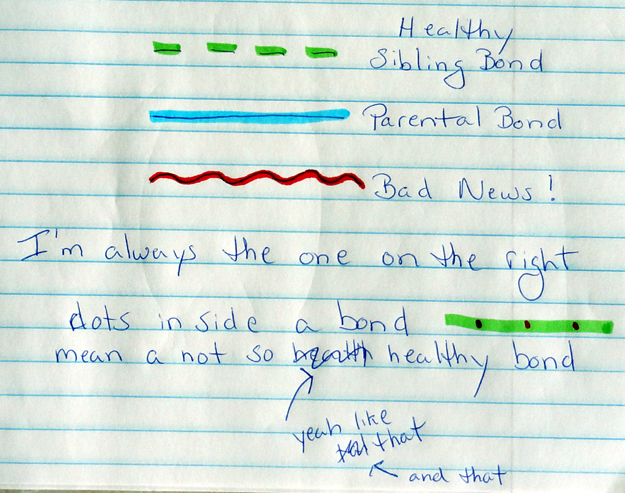 Healthy
Sibling Bond
Parental Bond
Bad News!
I'm always the one on the right
dots in side a bond
mean a not so healthy bond
yeah like
that
and that